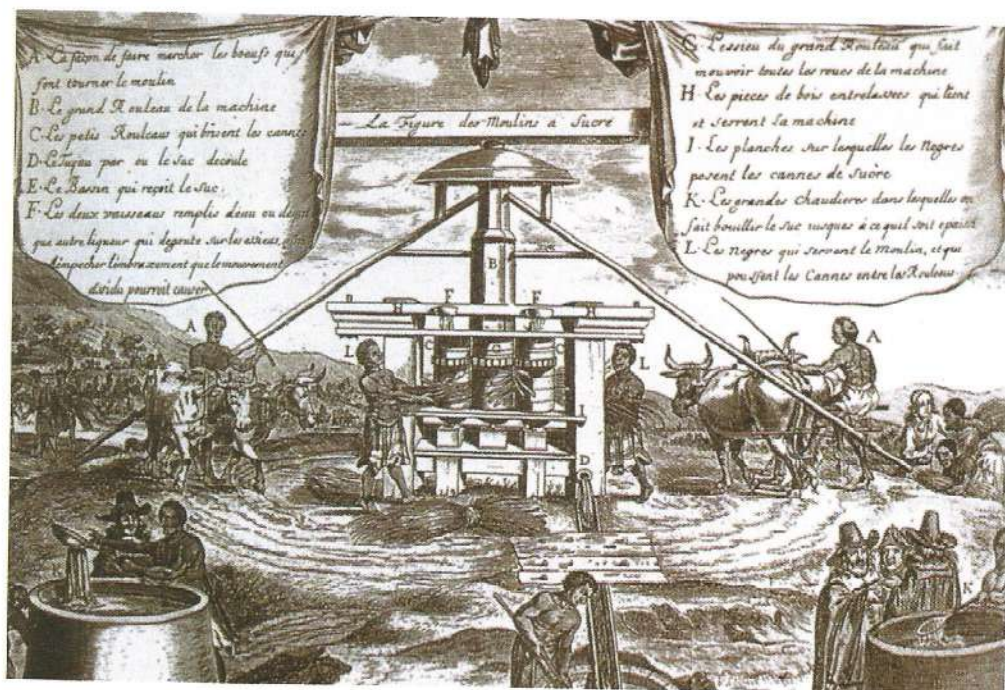 A. La façon de faire marcher les boeufs qui
font tourner le moulin
B. Le grand Rouleau de la machine
C. Les petis Rouleaus qui brisent les cannes
D. Le Tuyau par ou le suc decoule
E. Le Bassin qui reçoit le suc.
F. Les deux vaisseaus remplis deau ou de
que autre liqueur qui degoute sur les essieus,
d'impecher l'embrasement que le mouvement
pourroit causer
La Figure des Moulins a Sucre
G. L'essieu du grand Rouleau qui fait
mouvoir toutes les roues de la machine
H. Les pieces de bois entrelassées qui
et serrent la machine
I. Les planches sur lesquelles les Negres
posent les cannes de sucre
K. Les grandes chaudieres dans lesquelles on
fait bouillir le suc iusques à ce quil soit epaissi
L. Les negres qui servent le Moulin, et qui
poussent les Cannes entre les Rouleaus.
A
L
B
H
F
F
H
C
G
C
I
D
L
A
K